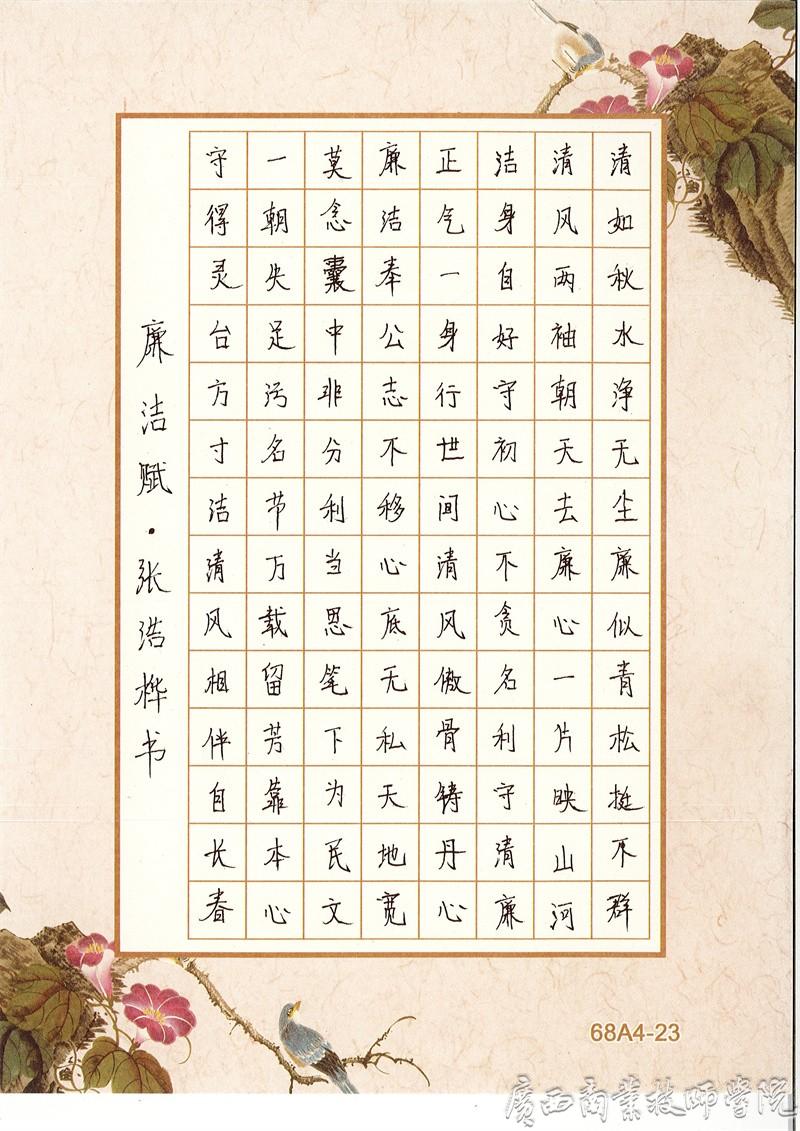 清如秋水净无尘廉似青松挺不群
清风两袖朝天去廉心一片映山河
洁身自好守初心不贪名利守清廉
正气一身行世间清风傲骨铸丹心
廉洁奉公志不移心底无私天地宽
莫念囊中非分利当思笔下为民文
一朝失足污名节万载留芳靠本心
守得灵台方寸洁清风相伴自长春
廉洁赋·张浩桦书
68A4-23
廣西商業技师學院